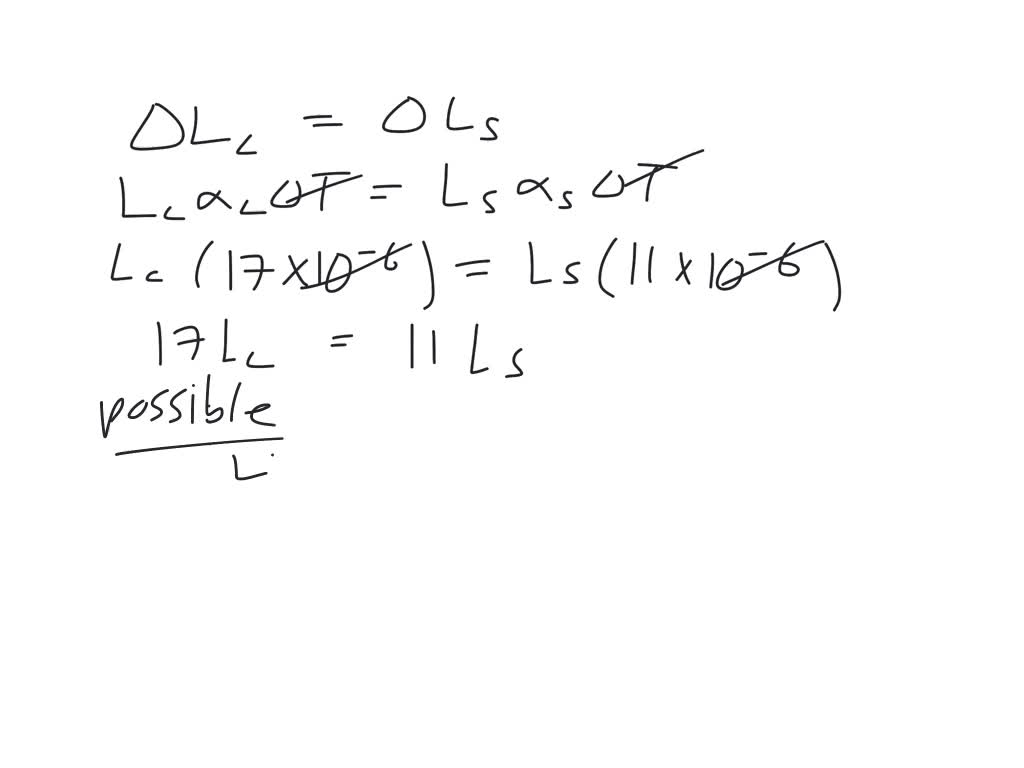 ΔL_c = ΔL_s
L_c α_c ΔT = L_s α_s ΔT
L_c (17 × 10^-6) = L_s (11 × 10^-6)
17 L_c = 11 L_s
possible
L